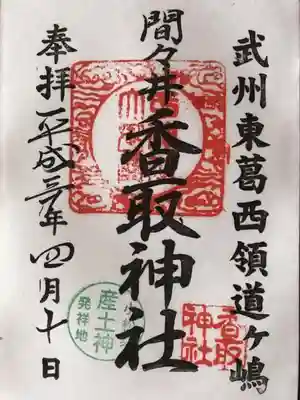 武州東葛西領道ヶ嶋
間々井
香取神社
奉拝
平成三十年四月十日
香取
神社
産土神
発祥地